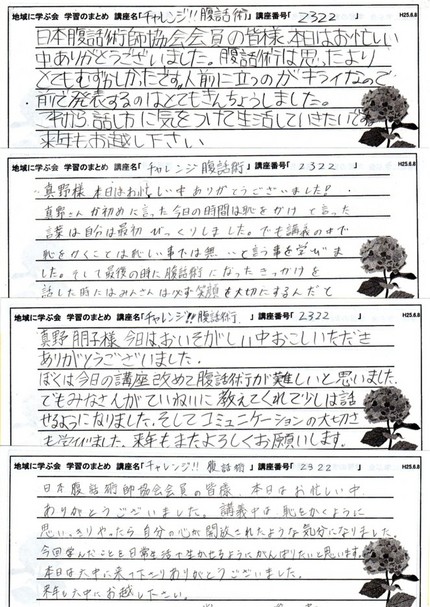 地域に学ぶ会 学習のまとめ 講座名「チャレンジ!!腹話術」講座番号「2322」 H25.6.8
日本腹話術師協会会員の皆様、本日はお忙しい
中ありがとうございました。腹話術は思ったより
とてもむずかしかったです。人前に立つのがキライなので
前で発表するのはとてもきんちょうしました。
これから話し方に気をつけて生活していきたいです。
来年もお越し下さい
地域に学ぶ会 学習のまとめ 講座名「チャレンジ腹話術」講座番号「2322」 H25.6.8
真野様 本日はお忙しい中ありがとうございました!
真野さんが初めに言った今日の時間は恥をかけ と言った
言葉は自分は最初 びっくりしました。でも講義の中で
恥をかくことは恥しい事では無いと言う事を学びま
した。そして最後の時に腹話術になったきっかけを
話した時にはみんさんは必ず笑顔を大切にするんだと
地域に学ぶ会 学習のまとめ 講座名「チャレンジ!!腹話術」講座番号「2322」 H25.6.8
真野朋子様 今日は、おいそがしい中おこしいただき
ありがとうございました。
ぼくは今日の講座改めて腹話術が難しいと思いました。
でもみなさんがていねいに教えてくれて少しは話
せるようになりました。そしてコミュニケーションの大切さ
も学びました。来年もまたよろしくお願いします。
地域に学ぶ会 学習のまとめ 講座名「チャレンジ!!腹話術」講座番号「2322」 H25.6.8
日本腹話術師協会会員の皆様、本日はお忙しい中、
ありがとうございました。講義中は、恥をかくように
思いっきりやったら自分の心が開放されたような気分になりました。
今回学んだことを日常生活で生かせるようにがんばりたいと思います。
本日は大中に来て下さりありがとうございました。
来年も大中にお越し下さい。